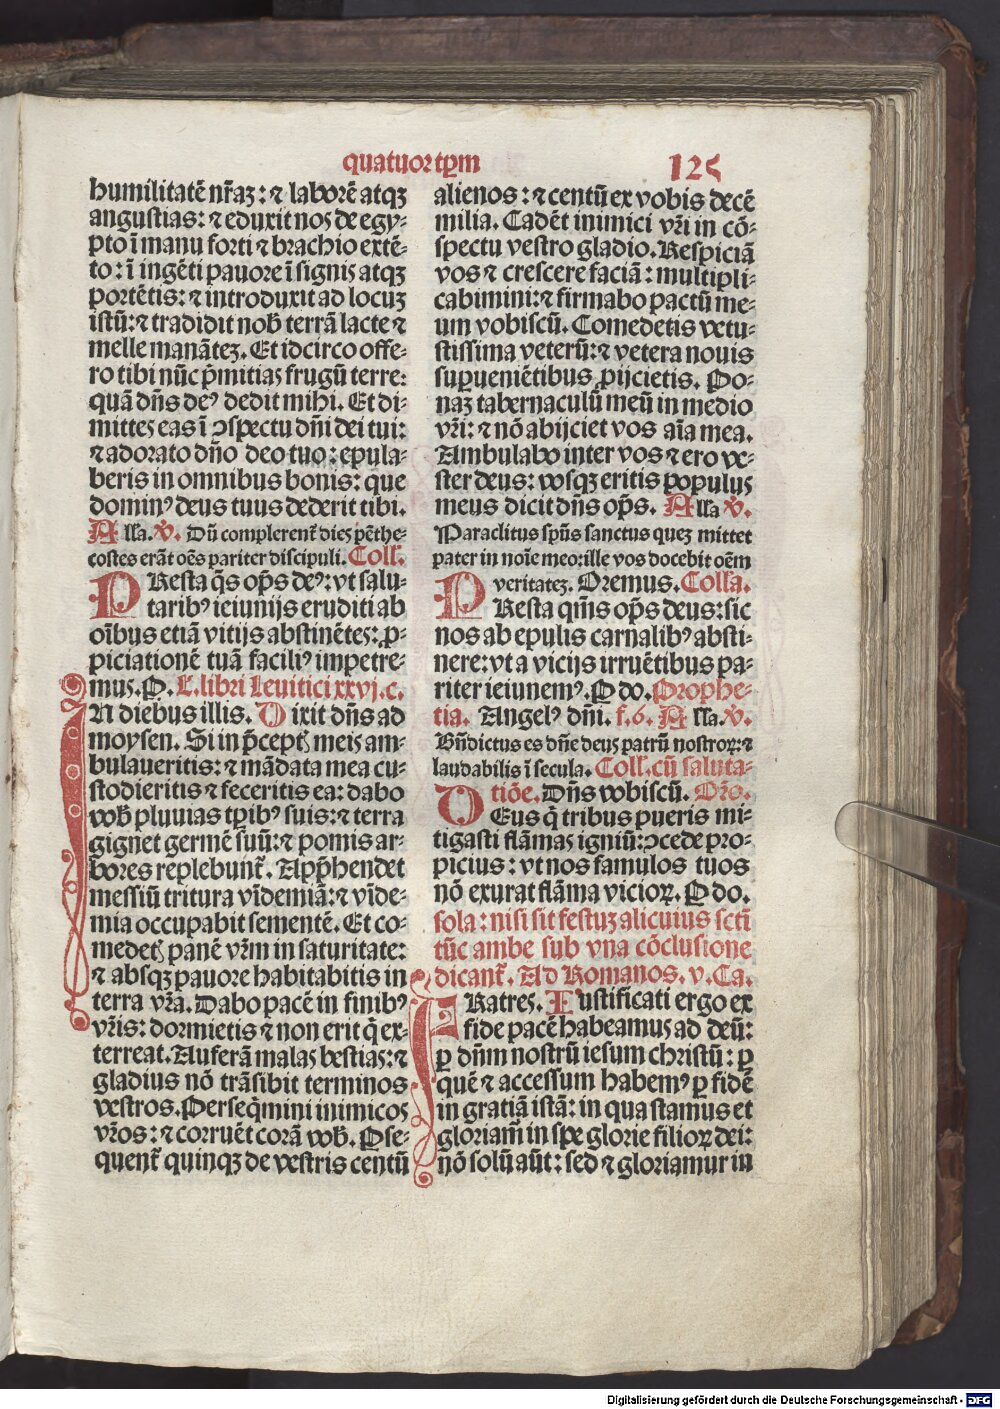 quatuor tp̄m
125
humilitatē nr̄aꝫ: ⁊ laborē atqꝫ
angustias: ⁊ eduxit nos de egy-
pto ī manu forti ⁊ brachio extē-
to: ī ingēti pauore ī signis atqꝫ
portētis: ⁊ introduxit ad locuꝫ
istū: ⁊ tradidit nob̄ terrā lacte ⁊
melle manāteꝫ. Et idcirco offe-
ro tibi nūc p̄mitias frugū terre:
quā dn̄s deꝰ dedit mihi. Et di-
mittes eas ī ↄspectu dn̄i dei tui:
⁊ adorato dn̄o deo tuo: epula-
beris in omnibus bonis: que
dominꝰ deus tuus dederit tibi.
Alla. v̄. Dū complerent᷑ dies pēthe-
costes erāt oēs pariter discipuli. Coll̄.
PResta q̄s op̄s deꝰ: vt salu-
taribꝰ ieiunijs eruditi ab
oībus etiā vitijs abstinētes: ꝓ-
piciationē tuā faciliꝰ impetre-
mus. P. L. libri Leuitici xxvj. c.
IN diebus illis. Dixit dn̄s ad
moysen. Si in p̄ceptꝭ meis am-
bulaueritis: ⁊ mādata mea cu-
stodieritis ⁊ feceritis ea: dabo
vob̄ pluuias tp̄ibꝰ suis: ⁊ terra
gignet germē suū: ⁊ pomis ar-
bores replebunt᷑. App̄hendet
messiū tritura vīdemiā: ⁊ vīde-
mia occupabit sementē. Et co-
medetꝭ panē vr̄m in saturitate:
⁊ absqꝫ pauore habitabitis in
terra vr̄a. Dabo pacē in finibꝰ
vr̄is: dormietis ⁊ non erit q̄ ex-
terreat. Auferā malas bestias: ⁊
gladius nō trāsibit terminos
vestros. Perseq̄mini inimicos
vr̄os: ⁊ corruēt corā vob̄. Pse-
quent᷑ quinqꝫ de vestris centū
alienos: ⁊ centū ex vobis decē
milia. Cadēt inimici vr̄i in cō-
spectu vestro gladio. Respiciā
vos ⁊ crescere faciā: multipli-
cabimini: ⁊ firmabo pactū me-
um vobiscū. Comedetis vetu-
stissima veterū: ⁊ vetera nouis
suꝑueniētibus ꝓijcietis. Po-
naꝫ tabernaculū meū in medio
vr̄i: ⁊ nō abijciet vos aīa mea.
Ambulabo inter vos ⁊ ero ve-
ster deus: vosqꝫ eritis populus
meus dicit dn̄s op̄s. Alla v̄.
Paraclitus sp̄us sanctus queꝫ mittet
pater in noīe meo: ille vos docebit oēm
veritateꝫ. Oremus. Colla.
PResta qm̄s op̄s deus: sic
nos ab epulis carnalibꝰ absti-
nere: vt a vicijs irruētibus pa-
riter ieiunemꝰ. P do. Prophe-
tia. Angelꝰ dn̄i. f. 6. Alla. v̄.
Bn̄dictus es dn̄e deus patrū nostroꝝ: ⁊
laudabilis ī secula. Coll. cū saluta-
tiōe. Dn̄s vobiscū. Or̄o.
DEus q̄ tribus pueris mi-
tigasti flāmas igniū: ↄcede pro-
picius: vt nos famulos tuos
nō exurat flāma vicioꝝ. P do.
sola: nisi sit festuꝫ alicuius scti̅
tūc ambe sub vna cōclusione
dicant᷑. Ad Romanos. v. Ca.
FRatres. Iustificati ergo ex
fide pacē habeamus ad deū:
ꝑ dn̄m nostrū iesum christū: ꝑ
quē ⁊ accessum habemꝰ ꝑ fidē
in gratiā istā: in qua stamus et
gloriam̄ in spe glorie filioꝝ dei:
nō solū aūt: sed ⁊ gloriamur in
Digitalisierung gefördert durch die Deutsche Forschungsgemeinschaft - DFG